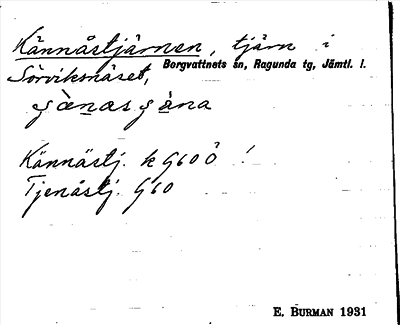 Kännåstjärnen, tjärn i
Sörviksnäset, Borgvattnets sn, Ragunda tg, Jämtl. l.
Kännåstj. k G60Ö ?!
Tjenåstj. G60
E. BURMAN 1931